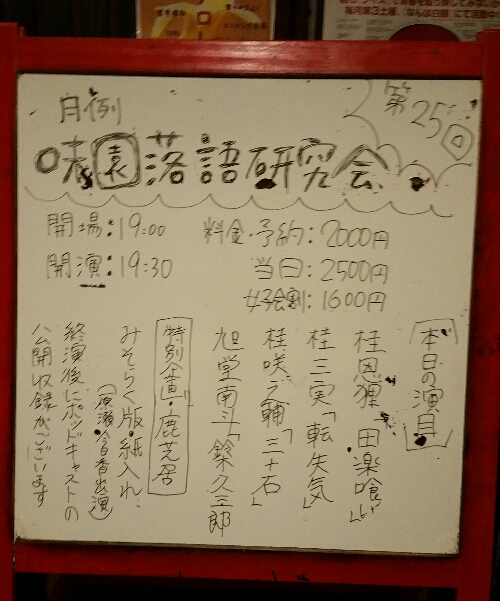 月例
第25回
味園落語研究会
開場:19:00
開演:19:30
料金・予約:2000円
当日:2500円
女子会割:1600円
本日の演目
桂恩狸「田楽喰い」
桂三実「転失気」
桂咲之輔「三十石」
旭堂南斗「鈴久三郎
特別企画・鹿芝居
みそらく版・紙入れ
終演後にポッドキャストの
公開収録がございます